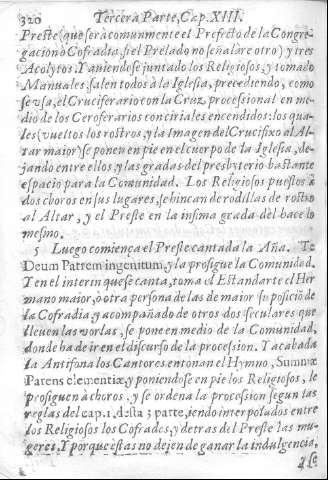 320 Tercera Parte, Cap. XIII.
Preste (que serà comunmente el Prefecto de la Congre-
gacion ò Cofradia, si el Prelado no señalàre otro) y tres
Acolytos. Y aviendose juntado los Religiosos, y tomado
Manuales, salen todos à la Iglesia, precediendo, como
se usa, el Cruciferario con la Cruz processional en me-
dio de los Ceroferarios con ciriales encendidos: los qua-
les (vueltos los rostros, y la Imagen del Crucifixo al Al-
tar maior) se ponen en pie en el cuerpo de la Iglesia, de-
jando entre ellos, y las gradas del presbyterio bastante
espacio para la Comunidad. Los Religiosos puestos à
dos choros en sus lugares, se hincan de rodillas de rostro
al Altar, y el Preste en la infima grada del hace lo
mesmo.
5 Luego comiença el Preste cantada la Aña. Te
Deum Patrem ingenitum, y la prosigue la Comunidad.
Y en el interin que se canta, toma el Estandarte el Her-
mano maior, ò otra persona de las de maior suposicio de
la Cofradia, y acompañado de otros dos seculares que
lleven las vorlas, se pone en medio de la Comunidad,
donde ha de ir en el discurso de la procession. Y acabada
la Antifona los Cantores entonan el Hymno, Summæ
Parens clementiæ, y poniendose en pie los Religiosos, le
prosiguen à choros, y se ordena la procession segun las
reglas del cap. 1. desta 3 parte, iendo interpolados entre
los Religiosos los Cofrades, y detras del Preste las mu-
geres. Y porque estas no dejen de ganar la indulgencia,